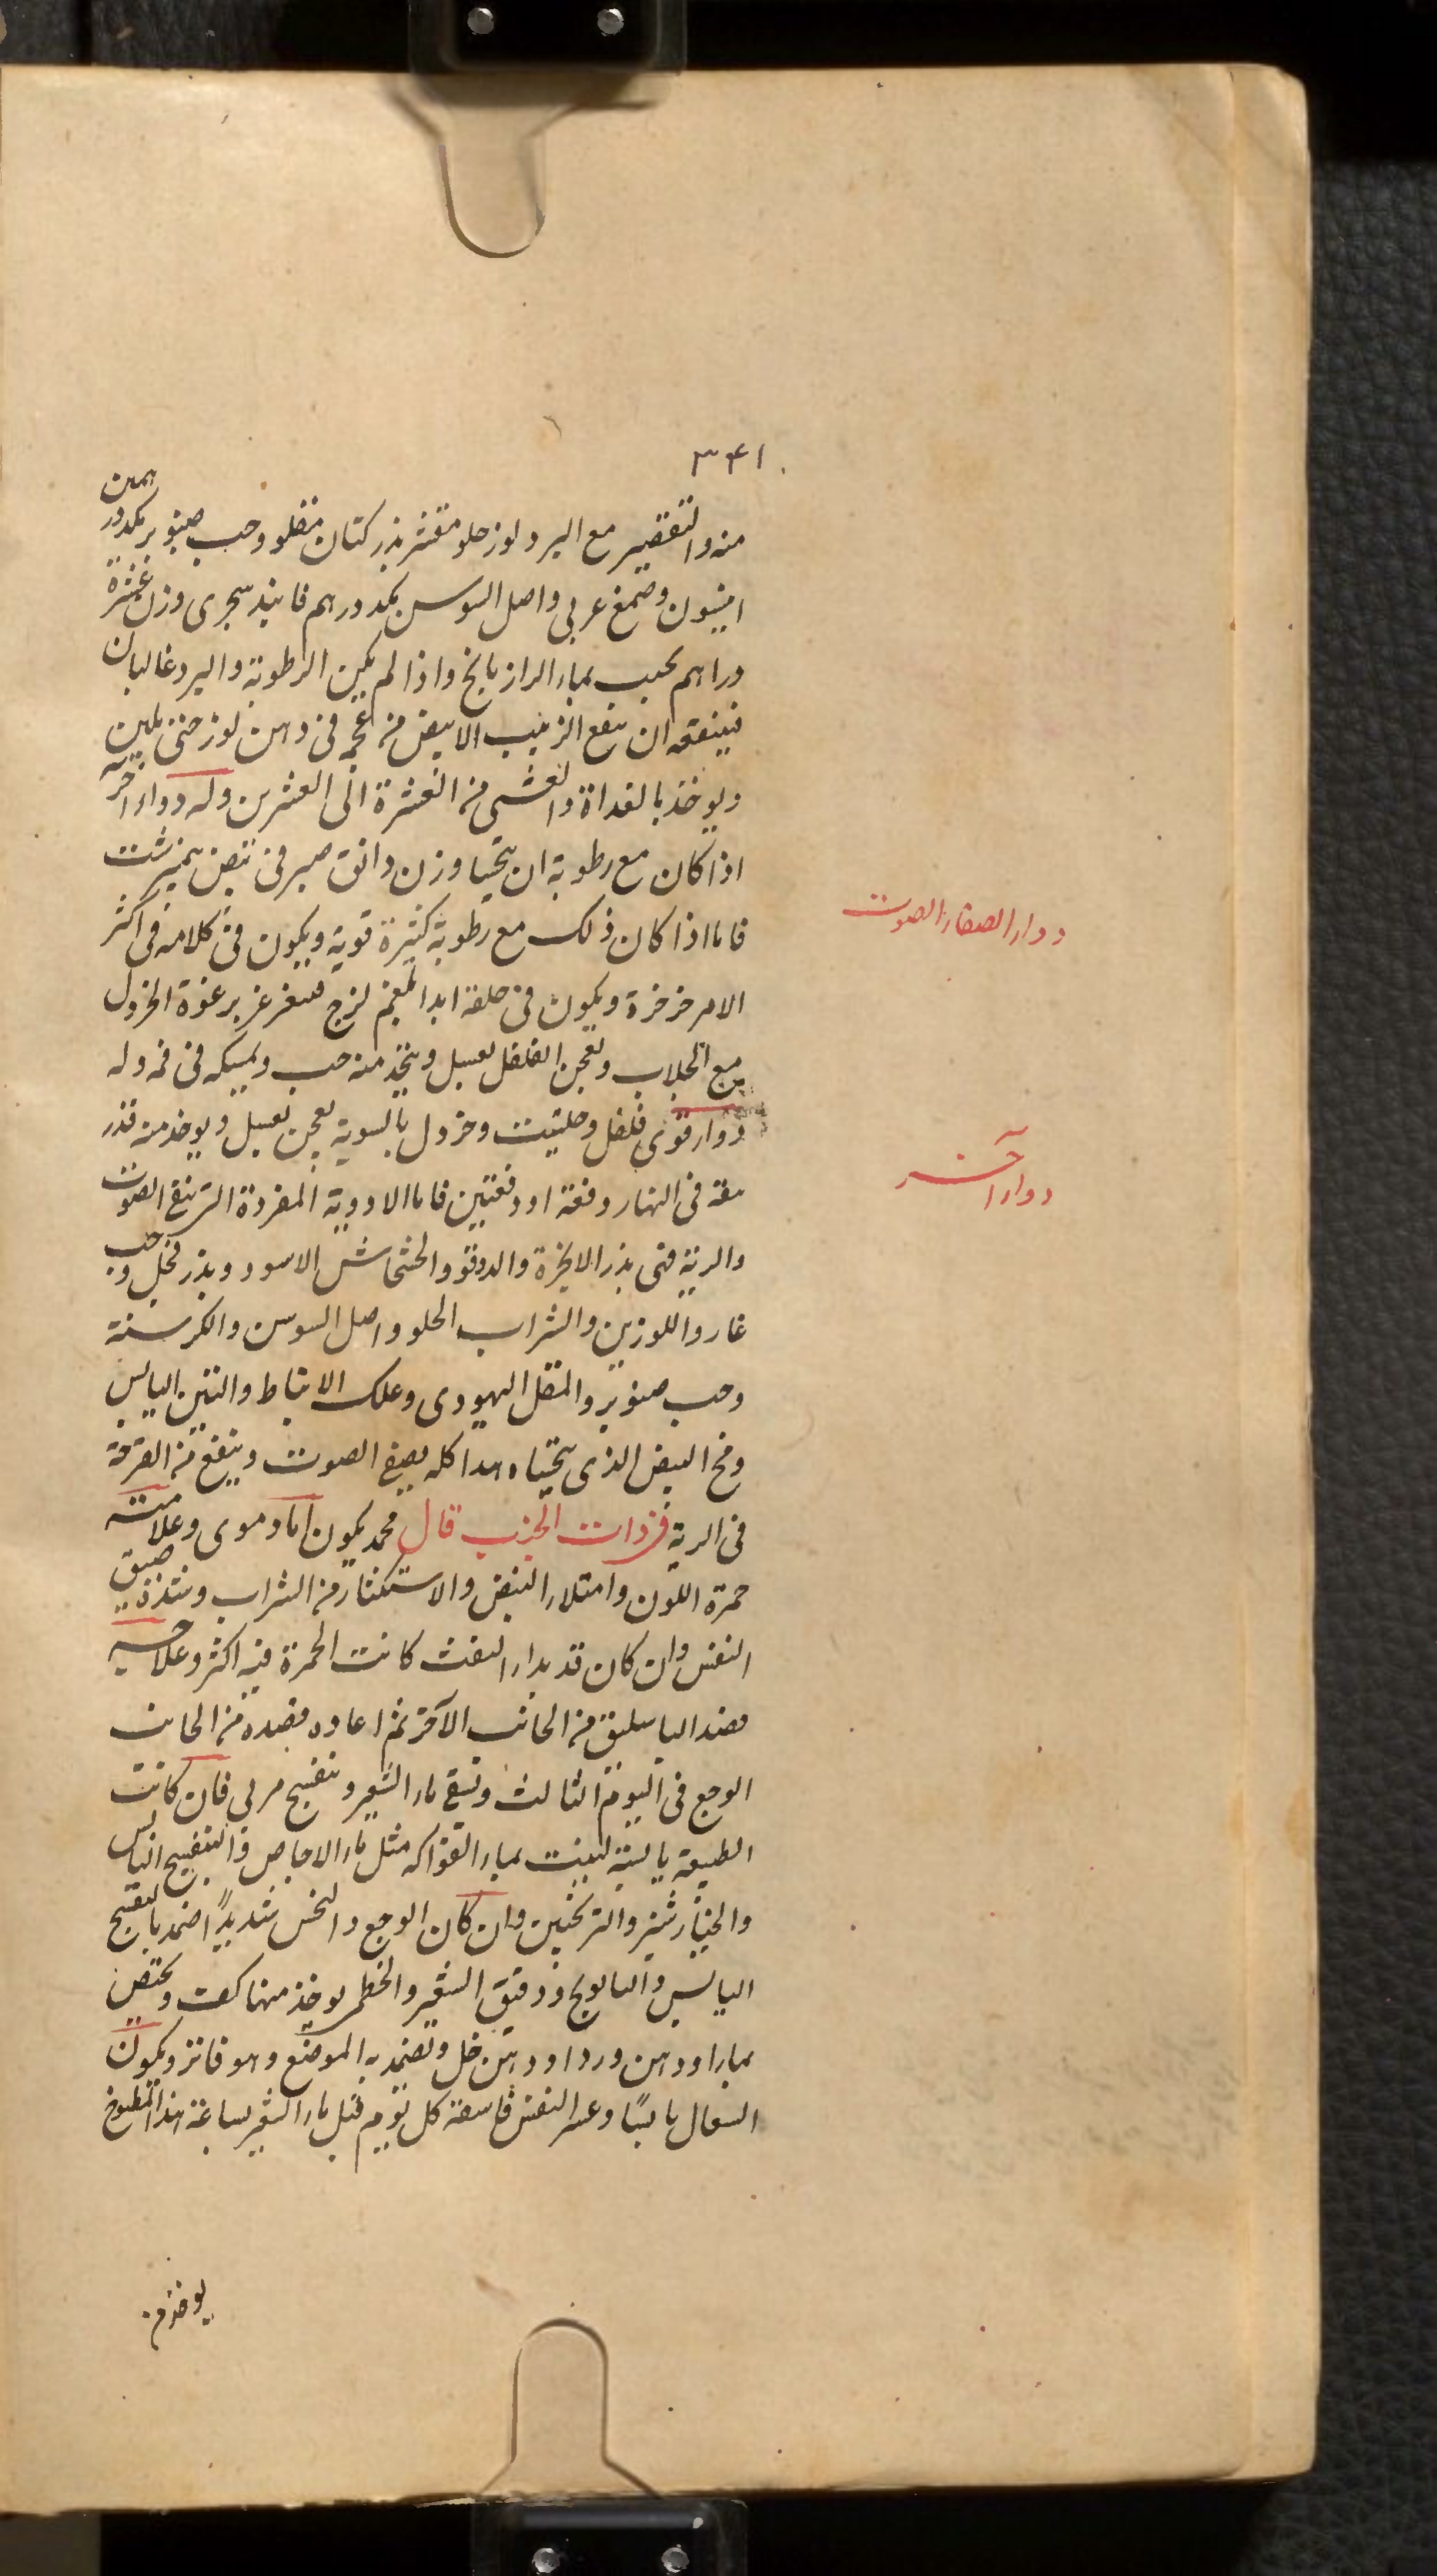 ۳۴۱
منه والتقصير مع البرد لوز حلو مقشر بذر كتان مقلو وحب صنوبر بكدور همين
انيسون وصمغ عربى واصل السوس بكدورهم فانيذ سجرى وزن عشرة
دراهم يحبب بماء الرازيانج واذا لم يكن الرطوبة والبرد غالبان
فينفعه ان ينقع الزبيب الابيض من عجم فى دهن لوز حتى يلين
ويوخذ بالغداة والعشى من العشرة الى العشرين وله دواء آخر
اذا كان مع رطوبة ان يتحسا وزن دانق صبر فى بيض نيمبرشت
فاما اذا كان ذلك مع رطوبة كثيرة قوية ويكون فى كلامه فى اكثر
الامر خرخرة ويكون فى حلقه ابدا بلغم لزج فيغرغر برغوة الخردل
مع الجلاب ويعجن الفلفل بعسل ويتخذ منه حب ويمسكه فى فمه وله
دواء قوى فلفل وحلتيت وخردل بالسوية يعجن بعسل ويوخذ منه قدر
ملعقة فى النهار دفعة او دفعتين فاما الادوية المفردة التى تنفع الصوت
والرية فهى بذر الانجرة والدوقو والخشخاش الاسود وبذر فجل وحب
غار واللوزين والشراب الحلو واصل السوسن والكرسنة
وحب صنوبر والمقل اليهودى وعلك الانباط والتين اليابس
ومح البيض الذى يتحساه هذا كله يصفى الصوت وينفع من القرحة
فى الرية فى ذات الجنب قال محمد يكون اما دموى وعلامته
حمرة اللون وامتلاء النبض والاستكثار من الشراب وشدة ضيق
النفس وان كان قد بدا النفث كانت الحمرة فيه اكثر وعلاجه
فصد الباسليق من الجانب الآخر ثم اعاده فصده من الجانب
الوجع فى اليوم الثالث ويسقى ماء الشعير وبنفسج مربى فان كانت
الطبيعة يابسة لينت بماء الفواكه مثل ماء الاجاص والبنفسج اليابس
والخيارشنبر والترنجبين وان كان الوجع والنخس شديدًا ضمد بالبنفسج
اليابس والبابونج ودقيق الشعير والخطمى يوخذ منها كف
بماء ودهن ورد او دهن خل ويضمد به الموضع وهو فاتر ويكون
السعال يابسًا وعسر النفس فاسقه كل يوم قبل ماء الشعير بساعة هذا المطبوخ
يوخذ من
دواء الصفاء الصوت
دواء آخر